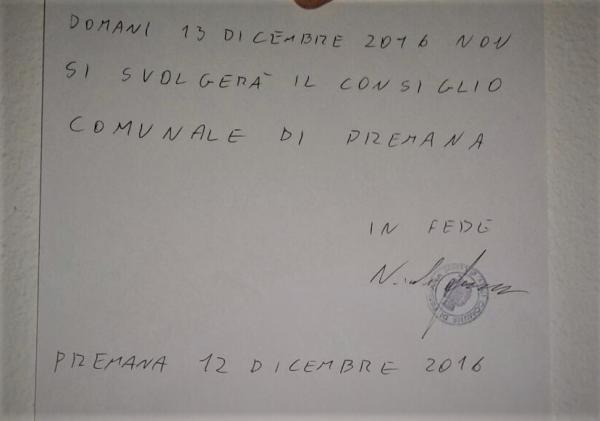 DOMANI 13 DICEMBRE 2016 NON
SI SVOLGERÀ IL CONSIGLIO
COMUNALE DI PREMANA
IN FEDE
PREMANA 12 DICEMBRE 2016